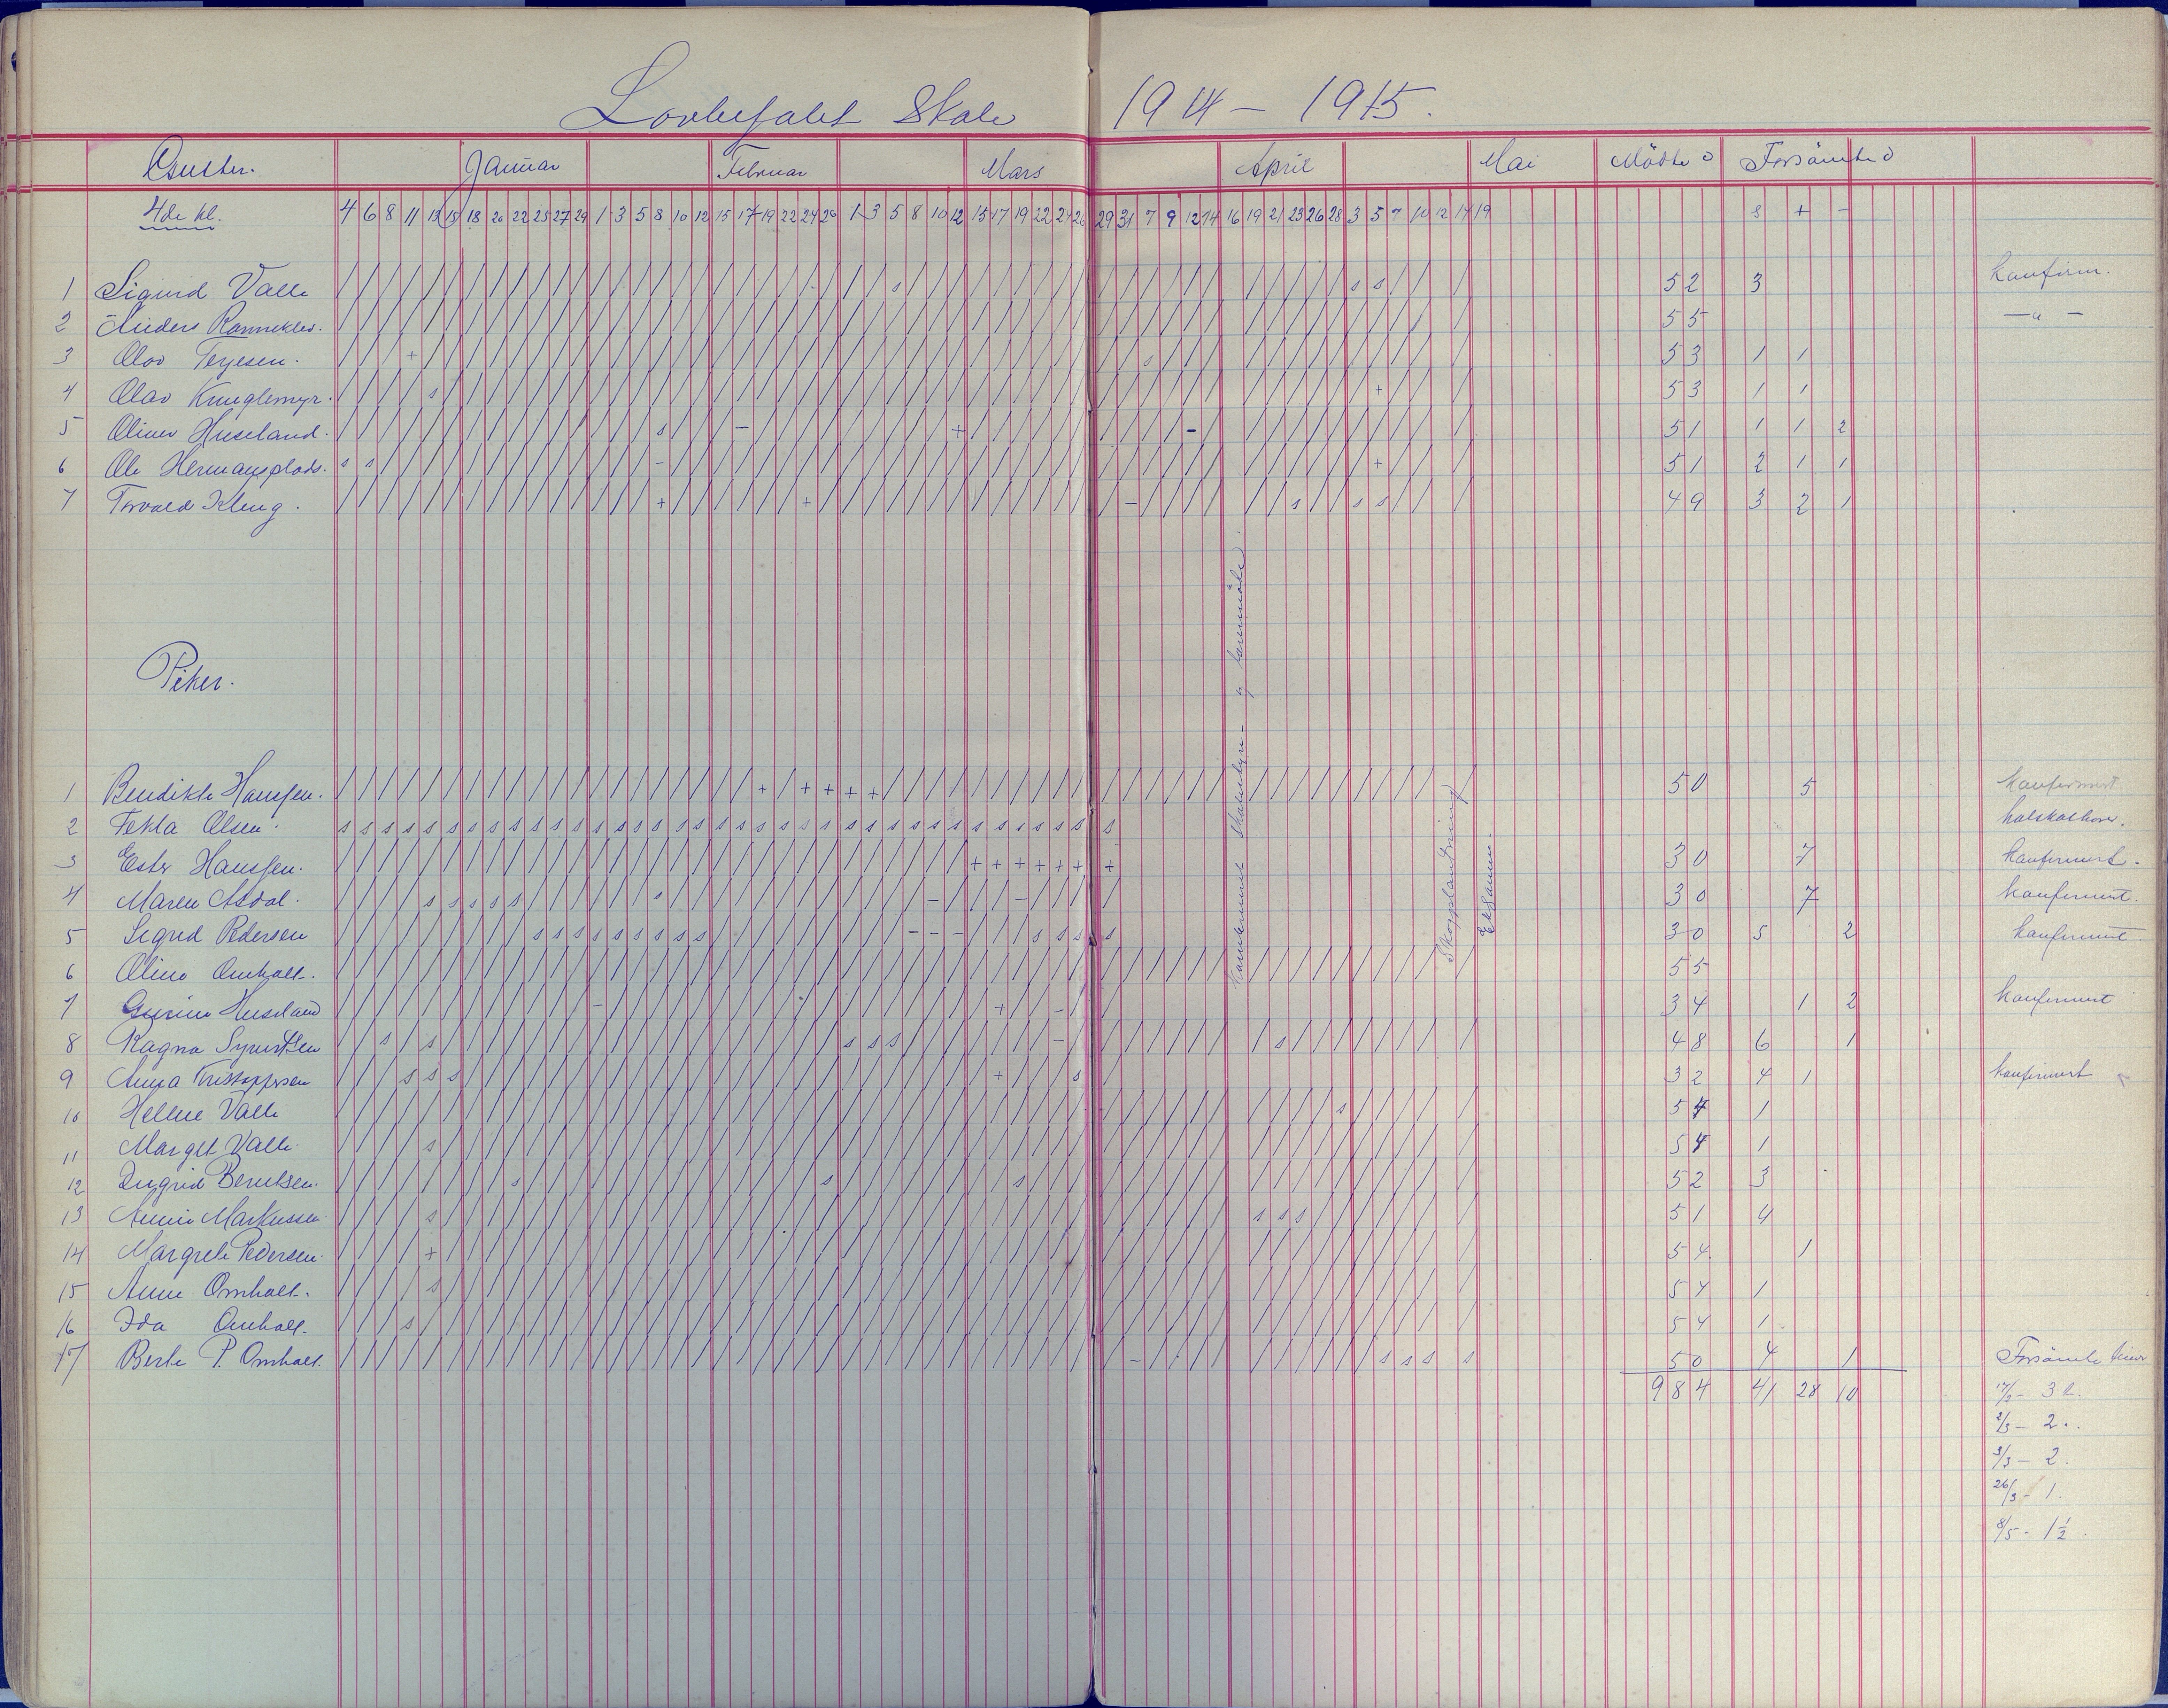 Lovbefalet Skole 1914 - 1915.
Januar Februar Mars April Mai Mödte d Forsömte d
4de kl. 4 6 8 11 13 15 18 20 22 25 27 29 1 3 5 8 10 12 15 17 19 22 24 26 1 3 5 8 10 12 15 17 19 22 24 26 29 31 7 9 12 14 16 19 21 23 26 28 3 5 7 10 12 14 19 s + -
1 Sigurd Valle s s s 52 3 konfirm.
2 Anders Ranneklev. 55 — " —
3 Olav Terjesen. + s 53 1 1
4 Olav s + 53 1 1
5 Oliver Huseland. s - + - 51 1 1 2
6 Ole Hermansplads. s s - + 51 2 1 1
7 Torvald Kleng. + + - s s s 49 3 2 1
Piker.
1 Bendikte Hansen. + + + + + 50 5 konfermert
2 Tekla Olsen. s s s s s s s s s s s s s s s s s s s s s s s s s s s s s s s s s s s s s
3 Ester Hansen. + + + + + + + 30 7 konfermert.
4 Maren Asdal. s s s s s s - - 30 7 konfermert.
5 Sigrid Pedersen s s s s s s s s s - - - s s s s 30 5 2 konfermert.
6 Omholt. 55
7 Huseland - + - 34 1 2 konfermert
8 Ragna s s s s s - s 48 6 1
9 Anna Kristoffersen s s s + s 32 4 1 konfermert
10 Hellene Valle s 54 1
11 Margit Valle. s 54 1
12 Ingrid Berntsen. s s s 52 3
13 Annie Markussen s s s s 51 4
14 Margrete Pedersen. + 54. 1
15 Anne Omholt. s 54 1
16 Ida Omholt. s 54 1.
17 Berte P. Omholt. - s s s s 50 4 1 Forsömte timer
984 41 28 10 17/3 - 3 t.
2/3 - 2.
3/3 - 2.
26/3 - 1.
8/5 - 1 1/2.
Skogplantning
Eksamen.